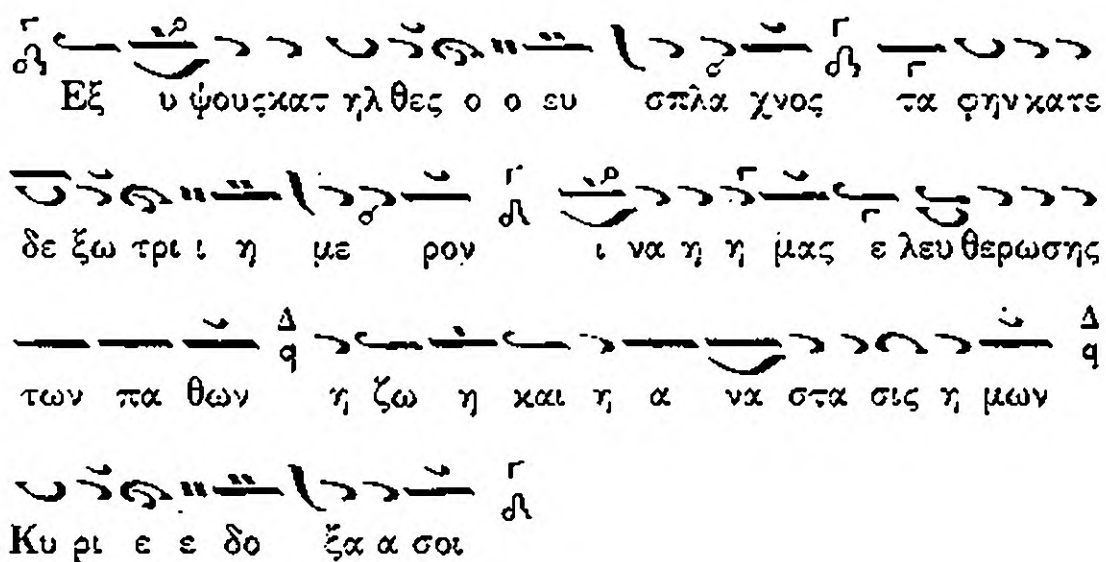 Εξ υ ψους κατ ηλ θες ο ο ευ σπλα χνος τα φην κατε
δε ξω τρι ι η με ρον ι να η η μας ε λευ θερωσης
των πα θων η ζω η και η α να στα σις η μων
Κυ ρι ε ε δο ξα α σοι